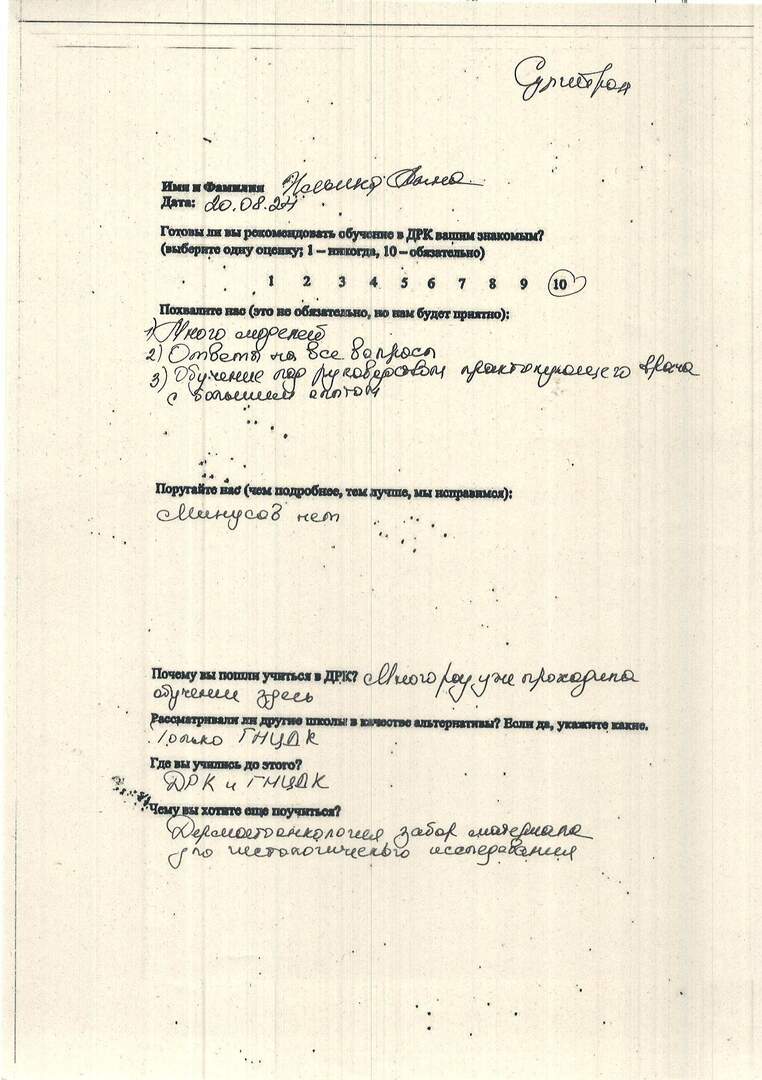 Сургитрон
Имя и Фамилия Анна
Дата: 20.08.24
Готовы ли вы рекомендовать обучение в ДРК вашим знакомым?
(выберите одну оценку; 1 – никогда, 10 – обязательно)
1 2 3 4 5 6 7 8 9 10
Похвалите нас (это не обязательно, но нам будет приятно):
1) Много моделей
2) Ответы на все вопросы
3) Обучение под руководством практикующего врача
с большим опытом
Поругайте нас (чем подробнее, тем лучше, мы исправимся):
Минусов нет
Почему вы пошли учиться в ДРК? Много раз уже проходила
обучение здесь
Рассматривали ли другие школы в качестве альтернативы? Если да, укажите какие.
Только ГНЦДК
Где вы учились до этого?
ДРК и ГНЦДК
Чему вы хотите еще поучиться?
Дерматоонкология забор материала
для гистологического исследования